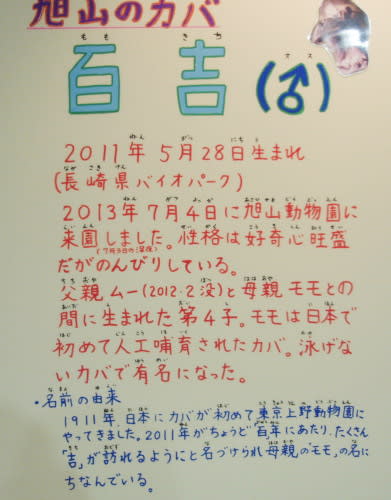 旭山のカバ
百吉(♂)
2011年 5月28日生まれ
(長崎県バイオパーク)
2013年7月4日に旭山動物園に
来園しました。性格は好奇心旺盛
(7月3日の深夜)
だがのんびりしている。
父親ムー(2012.2没)と母親モモとの
間に生まれた第4子。モモは日本で
初めて人工哺育されたカバ。泳げな
いカバで有名になった。
・名前の由来
1911年、日本にカバが初めて東京上野動物園に
やってきました。2011年がちょうど「百年」にあたり、たくさん
「吉」が訪れるようにと名づけられ母親の"モモ"の名に
ちなんでいる。